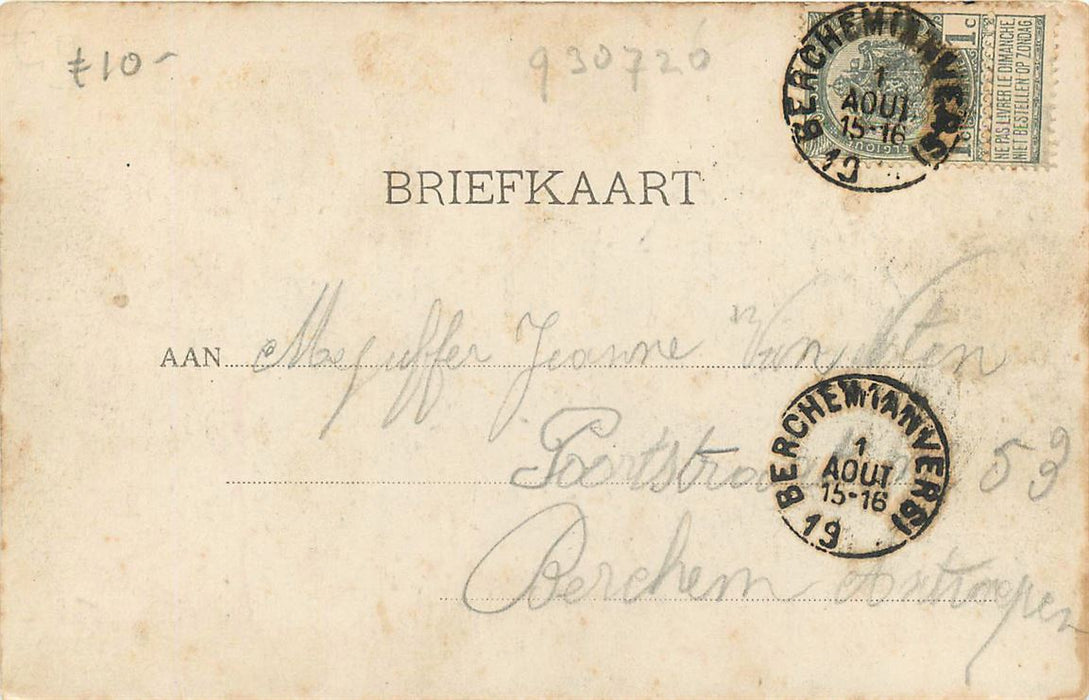 ₤10-
930726
1c
NE PAS LIVRER LE DIMANCHE
NIET BESTELLEN OP ZONDAG
1c
BELGIQUE
BERCHEM (ANVERS)
1
AOUT
15-16
19
BRIEFKAART
AAN Mejuffer Jeanne Van
53
BERCHEM (ANVERS)
1
AOUT
15-16
19
Berchem Antwerpen